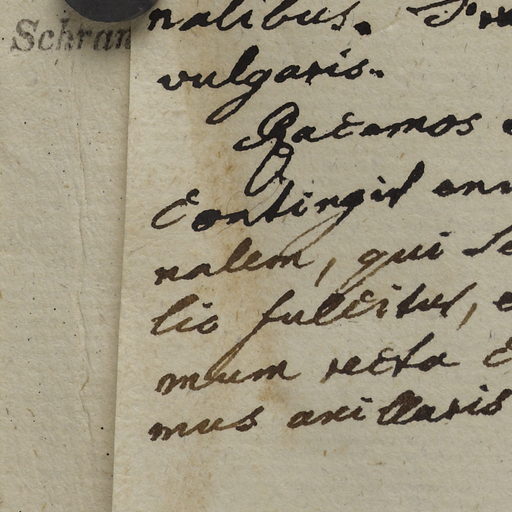 Schran
nalibus.
vulgaris.
Racemos
Contingit
nalem, qui
lio fulcitus,
mum recta
mus axillaris